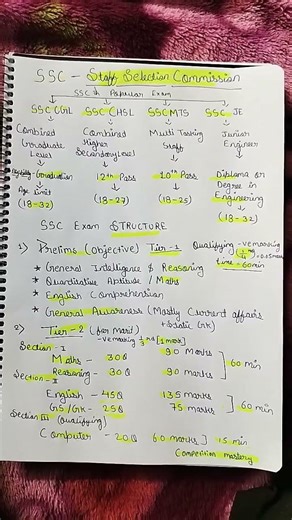 SSC - Staff Selection Commission
SSC th Popular Exam
SSC CGL SSC CHSL SSC MTS SSC JE
Combined Graduate Level
Combined Higher Secondary Level
Multi Tasking Staff
Junior Engineer
Graduation
12th Pass
10th Pass
Diploma or Degree in Engineering
Age Limit
(18-32)
(18-27)
(18-25)
(18-32)
SSC Exam STRUCTURE
1) Prelims (Objective) Tier-1 Qualifying -ve marking
time = 60min
* General Intelligence & Reasoning
* Quantitative Aptitude / Maths
* English Comprehension
* General Awareness (Mostly Current affairs
+ Static GK)
2) Tier-2 (for Merit)
-ve marking 1/3 [1 mark]
Section - I
Maths - 30Q 90 marks
Reasoning - 30Q 90 marks
60 min
Section - II
English - 45Q 135 marks
GS/GK - 25Q 75 marks
60 min
Section III (Qualifying)
Computer - 20Q 60 marks] 15 min
Competition mastery